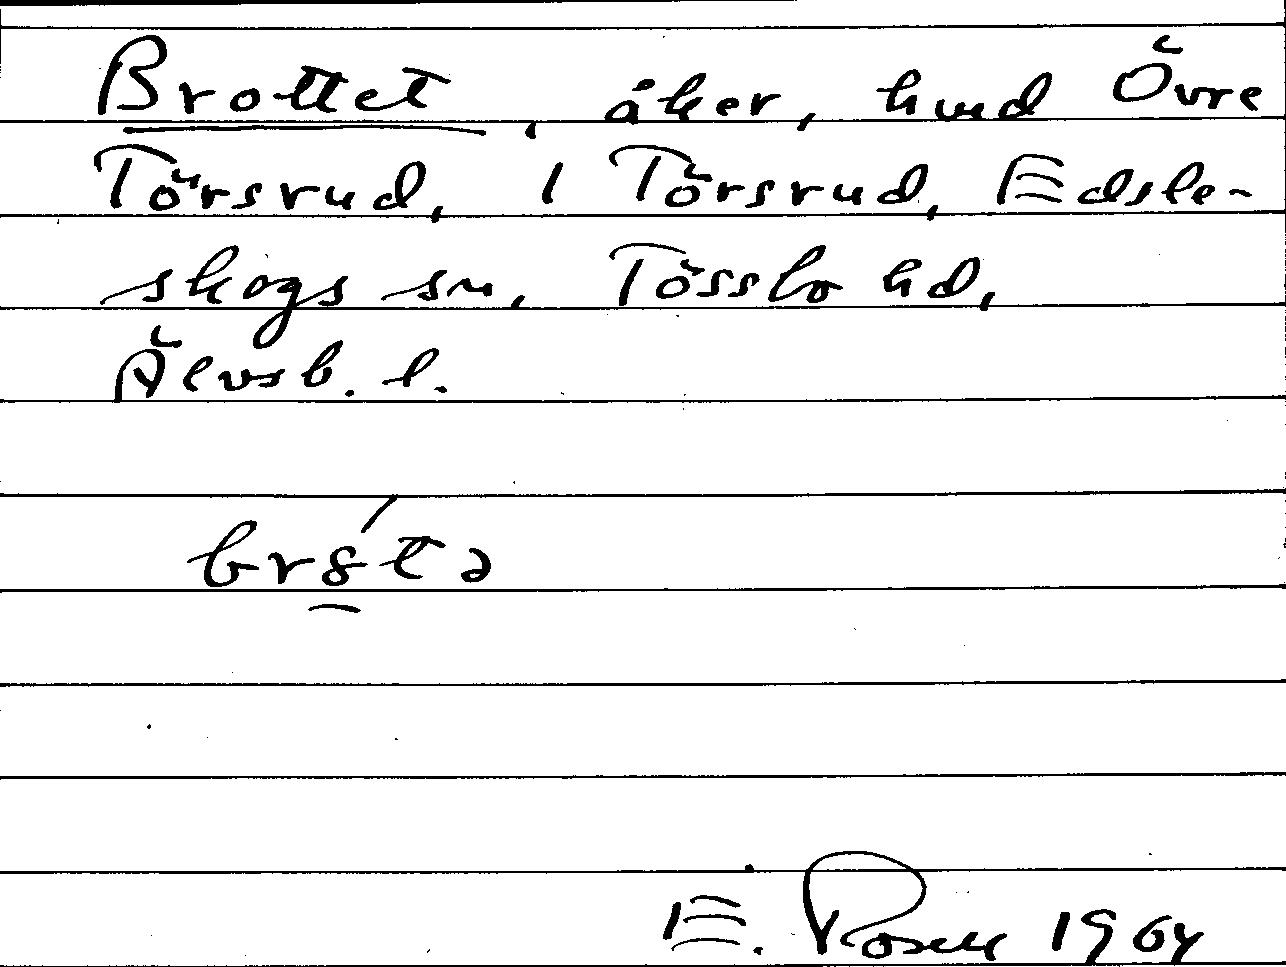 Brottet, åker, hmd Övre
Törsrud, 1 Törsrud, Edsle-
skogs sn, Tössbo hd,
Älvsb. l.
br8́tə
E. Rosell 1964